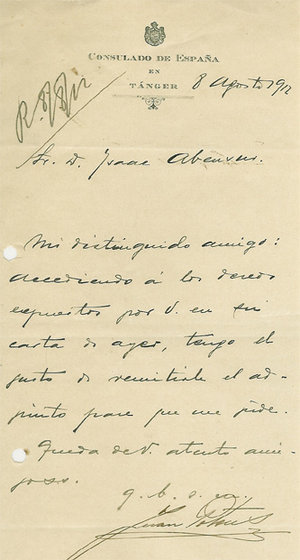 CONSULADO DE ESPAÑA
EN
TÁNGER
8 Agosto 912
Sr. D. Isaac Abensur.
Mi distinguido amigo:
accediendo á los deseos
expuestos por V. en su
carta de ayer, tengo el
gusto de remitirle el ad-
junto pase que me pide.
Queda de V. atento ami-
go s.s.
q. b. s. m.
Juan